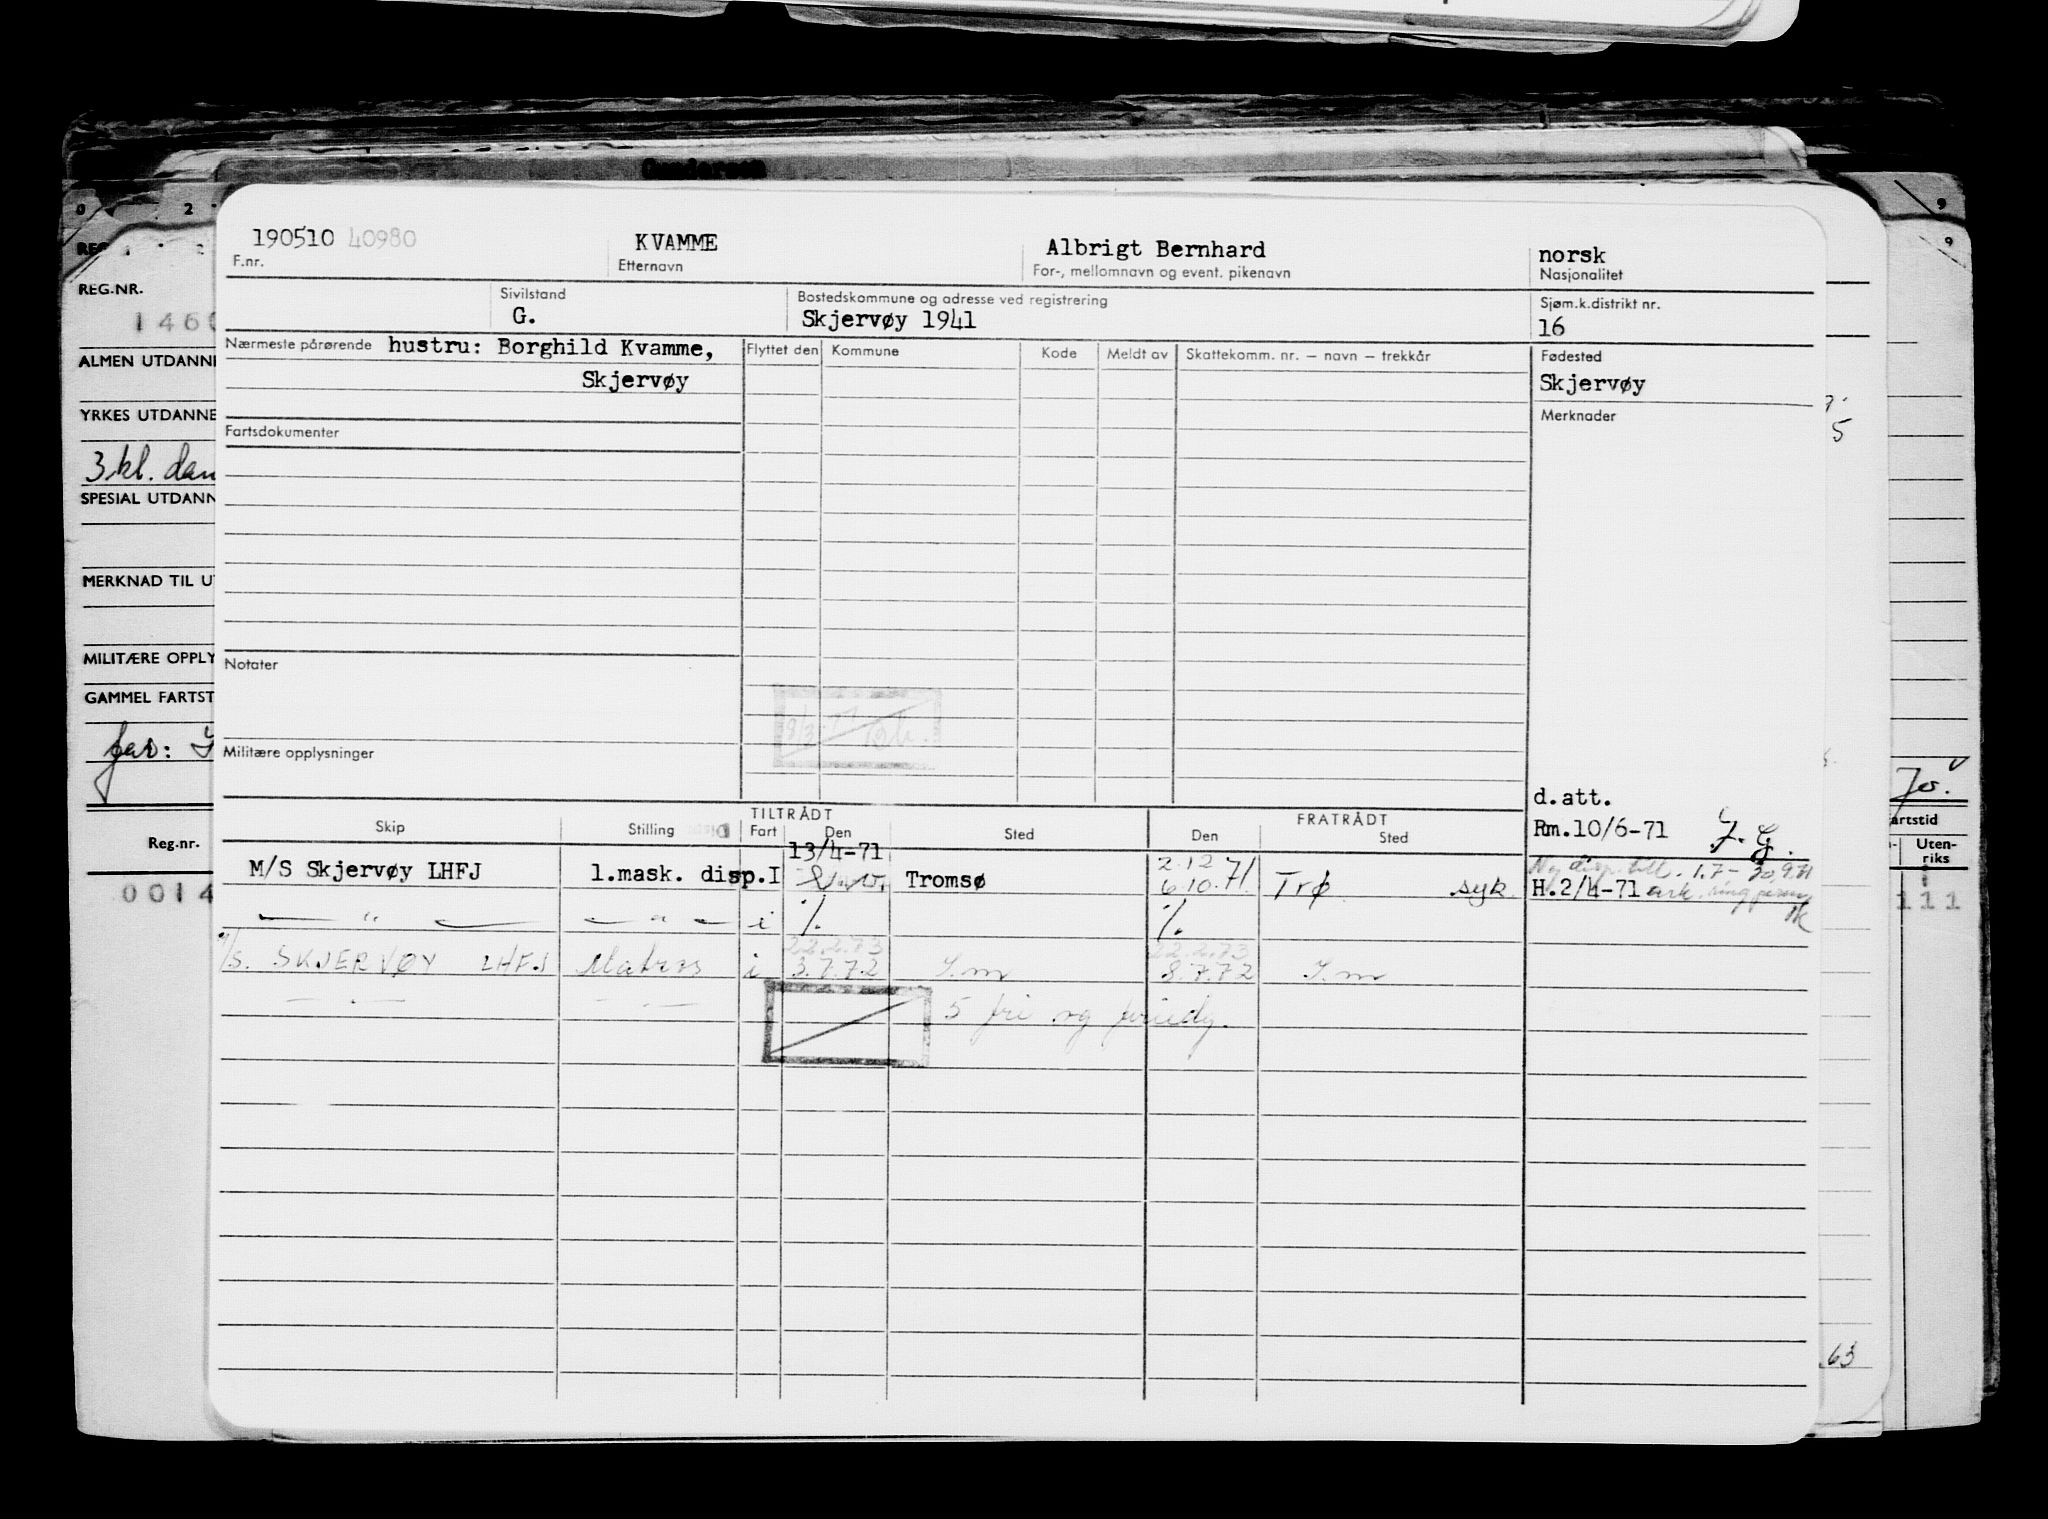 Gundersen
190510 40980
F.nr.
KVAMME
Etternavn
Albrigt Bernhard
For-, mellomnavn og event. pikenavn
norsk
Nasjonalitet
Sivilstand
G.
Bostedskommune og adresse ved registrering
Skjervøy 1941
Sjøm.k.distrikt nr.
16
Nærmeste pårørende hustru: Borghild Kvamme,
Skjervøy
Flyttet den Kommune Kode Meldt av Skattekomm. nr. — navn — trekkår
Fødested
Skjervøy
Merknader
Fartsdokumenter
Notater
Militære opplysninger
d.att.
Rm.10/6-71
H.2/4-71
TILTRÅDT FRATRÅDT
Skip Stilling Fart Den Sted Den Sted
13/4-71
M/S Skjervøy LHFJ 1.mask. disp.I Tromsø 2.12 6.10.71. Trø syk
— " — — " — i /. /.
22.2.73 22.2.73
M/S. SKJERVØY LHFJ Matros i 3.7.72 8.7.72
5 fri og feriedg.
REG.NR.
ALMEN UTDANNE
YRKES UTDANNE
3 kl.
SPESIAL UTDANN
MERKNAD TIL U
MILITÆRE OPPLY
GAMMEL FARTST
far:
Reg.nr.
0014
artstid
Uten-
riks
111
63